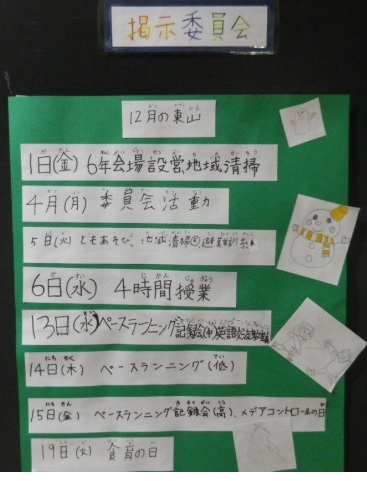 掲示委員会
12月の東山
1日(金) 6年会場設営、地域清掃
4月(月) 委員会活動
5日(火) しもあそび、地域清掃
6日(水) 4時間授業
13日(水) ペースランニング記録会(中)英語
14日(木) ペースランニング(低)
15日(金) ペースランニング記録会(高)、メデアコントロールの日
19日(火) 食育の日